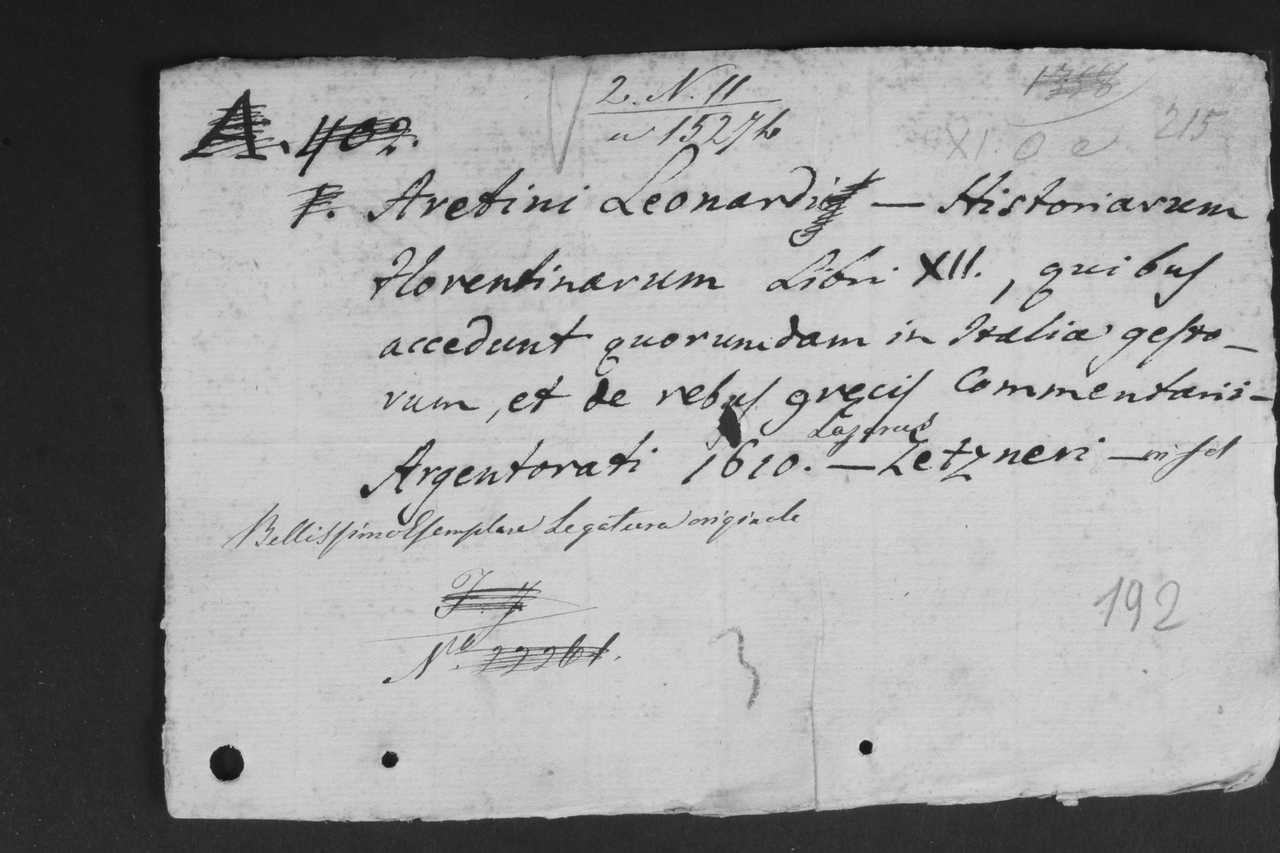 2. N. 11
215
A. 402.
a 1527 b
XI. O e
F. Aretini Leonardi — Historiarum
Florentinarum Libri XII., quibus
accedunt quorumdam in Italia gesto-
rum, et de rebus grecis Commentarii-
Lazarus
Argentorati 1610. — Zetzneri — in fol
Bellissimo Esemplare Legatura originale
192
N.º 22261.